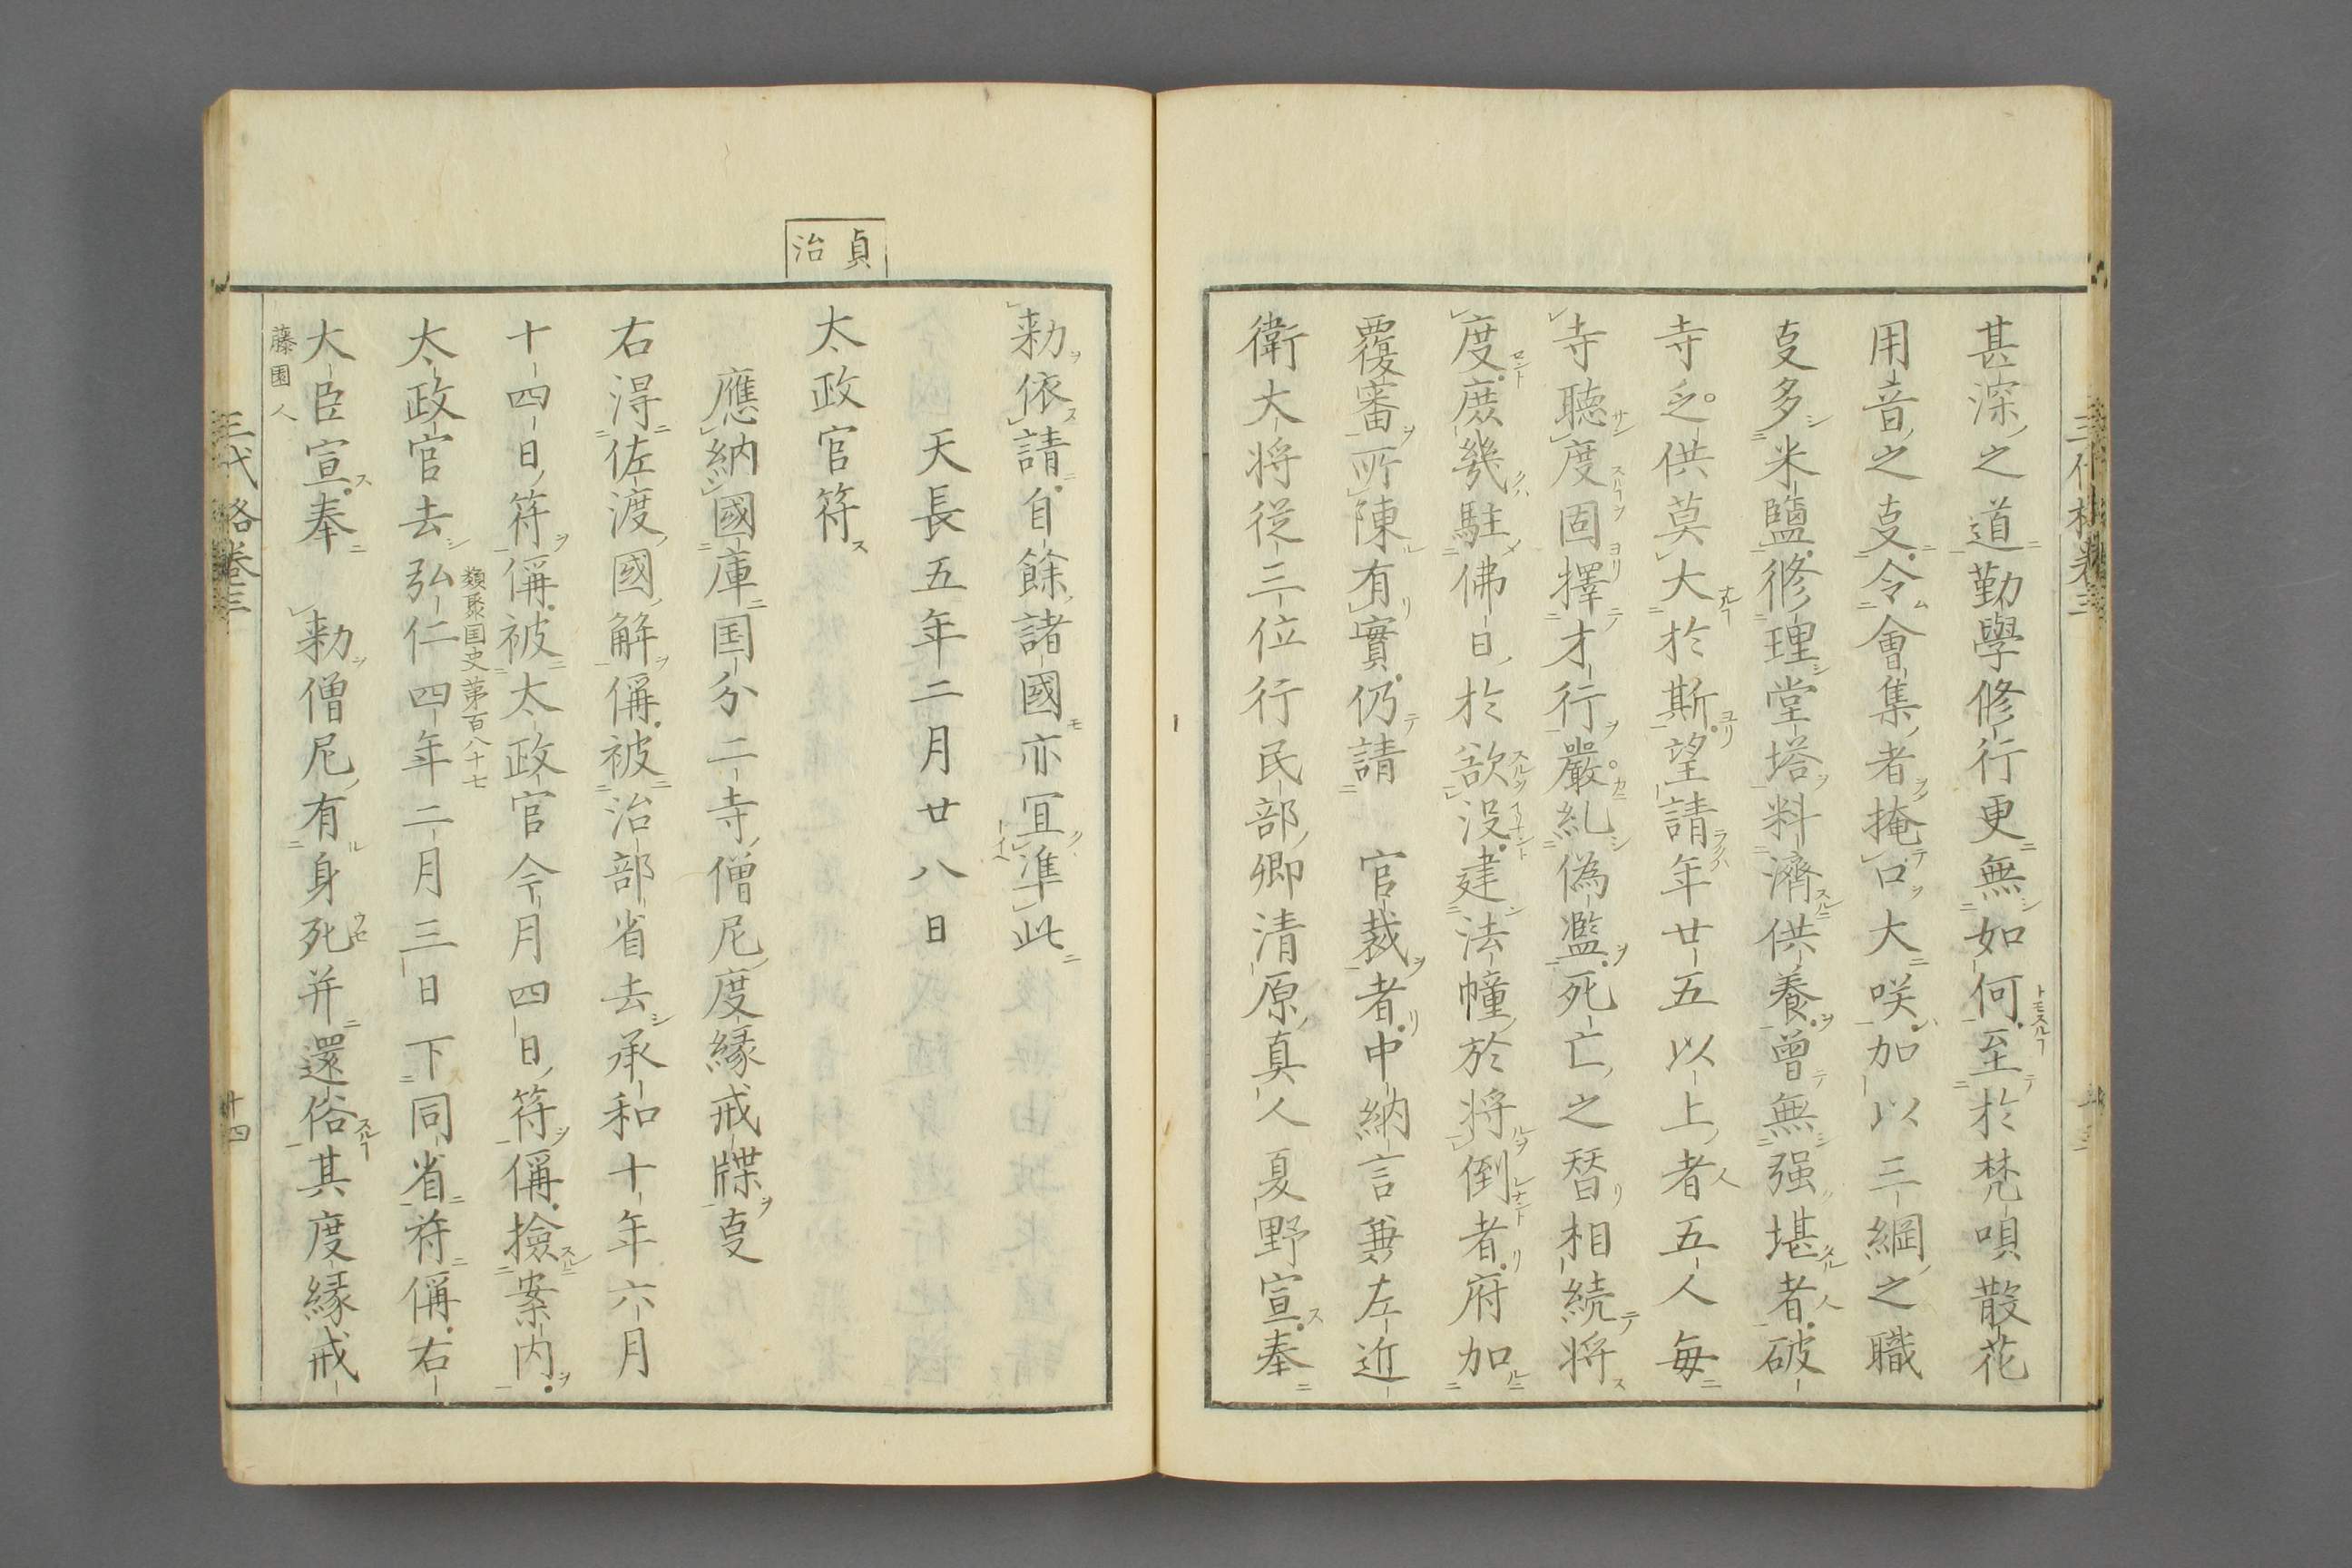 甚深之道勤學修行更無如何至於梵唄散花
用音之㕝令會集者掩口大咲加以三綱之職
㕝多米鹽修理堂塔料濟供養曾無强堪者破
寺乏供莫大於斯望請年廿五以上者五人每
寺聽度固擇才行嚴糺偽濫死亡之替相続将
度庶幾駐佛日於欲没建法幢於将倒者府加
覆審所陳有實仍請　官裁者中納言兼左近
衛大将従三位行民部卿清原真人夏野宣奉
貞治
勅依請自餘諸國亦冝准此
天長五年二月廿八日
太政官符
應納國庫国分二寺僧尼度縁戒牒㕝
右得佐渡國解偁被治部省去承和十年六月
十四日符偁被太政官今月四日符偁撿案内
類聚国史第百八十七
太政官去弘仁四年二月三日下同省符偁右
大臣宣奉　勅僧尼有身死并還俗其度縁戒
藤園人
三代格卷三
十四